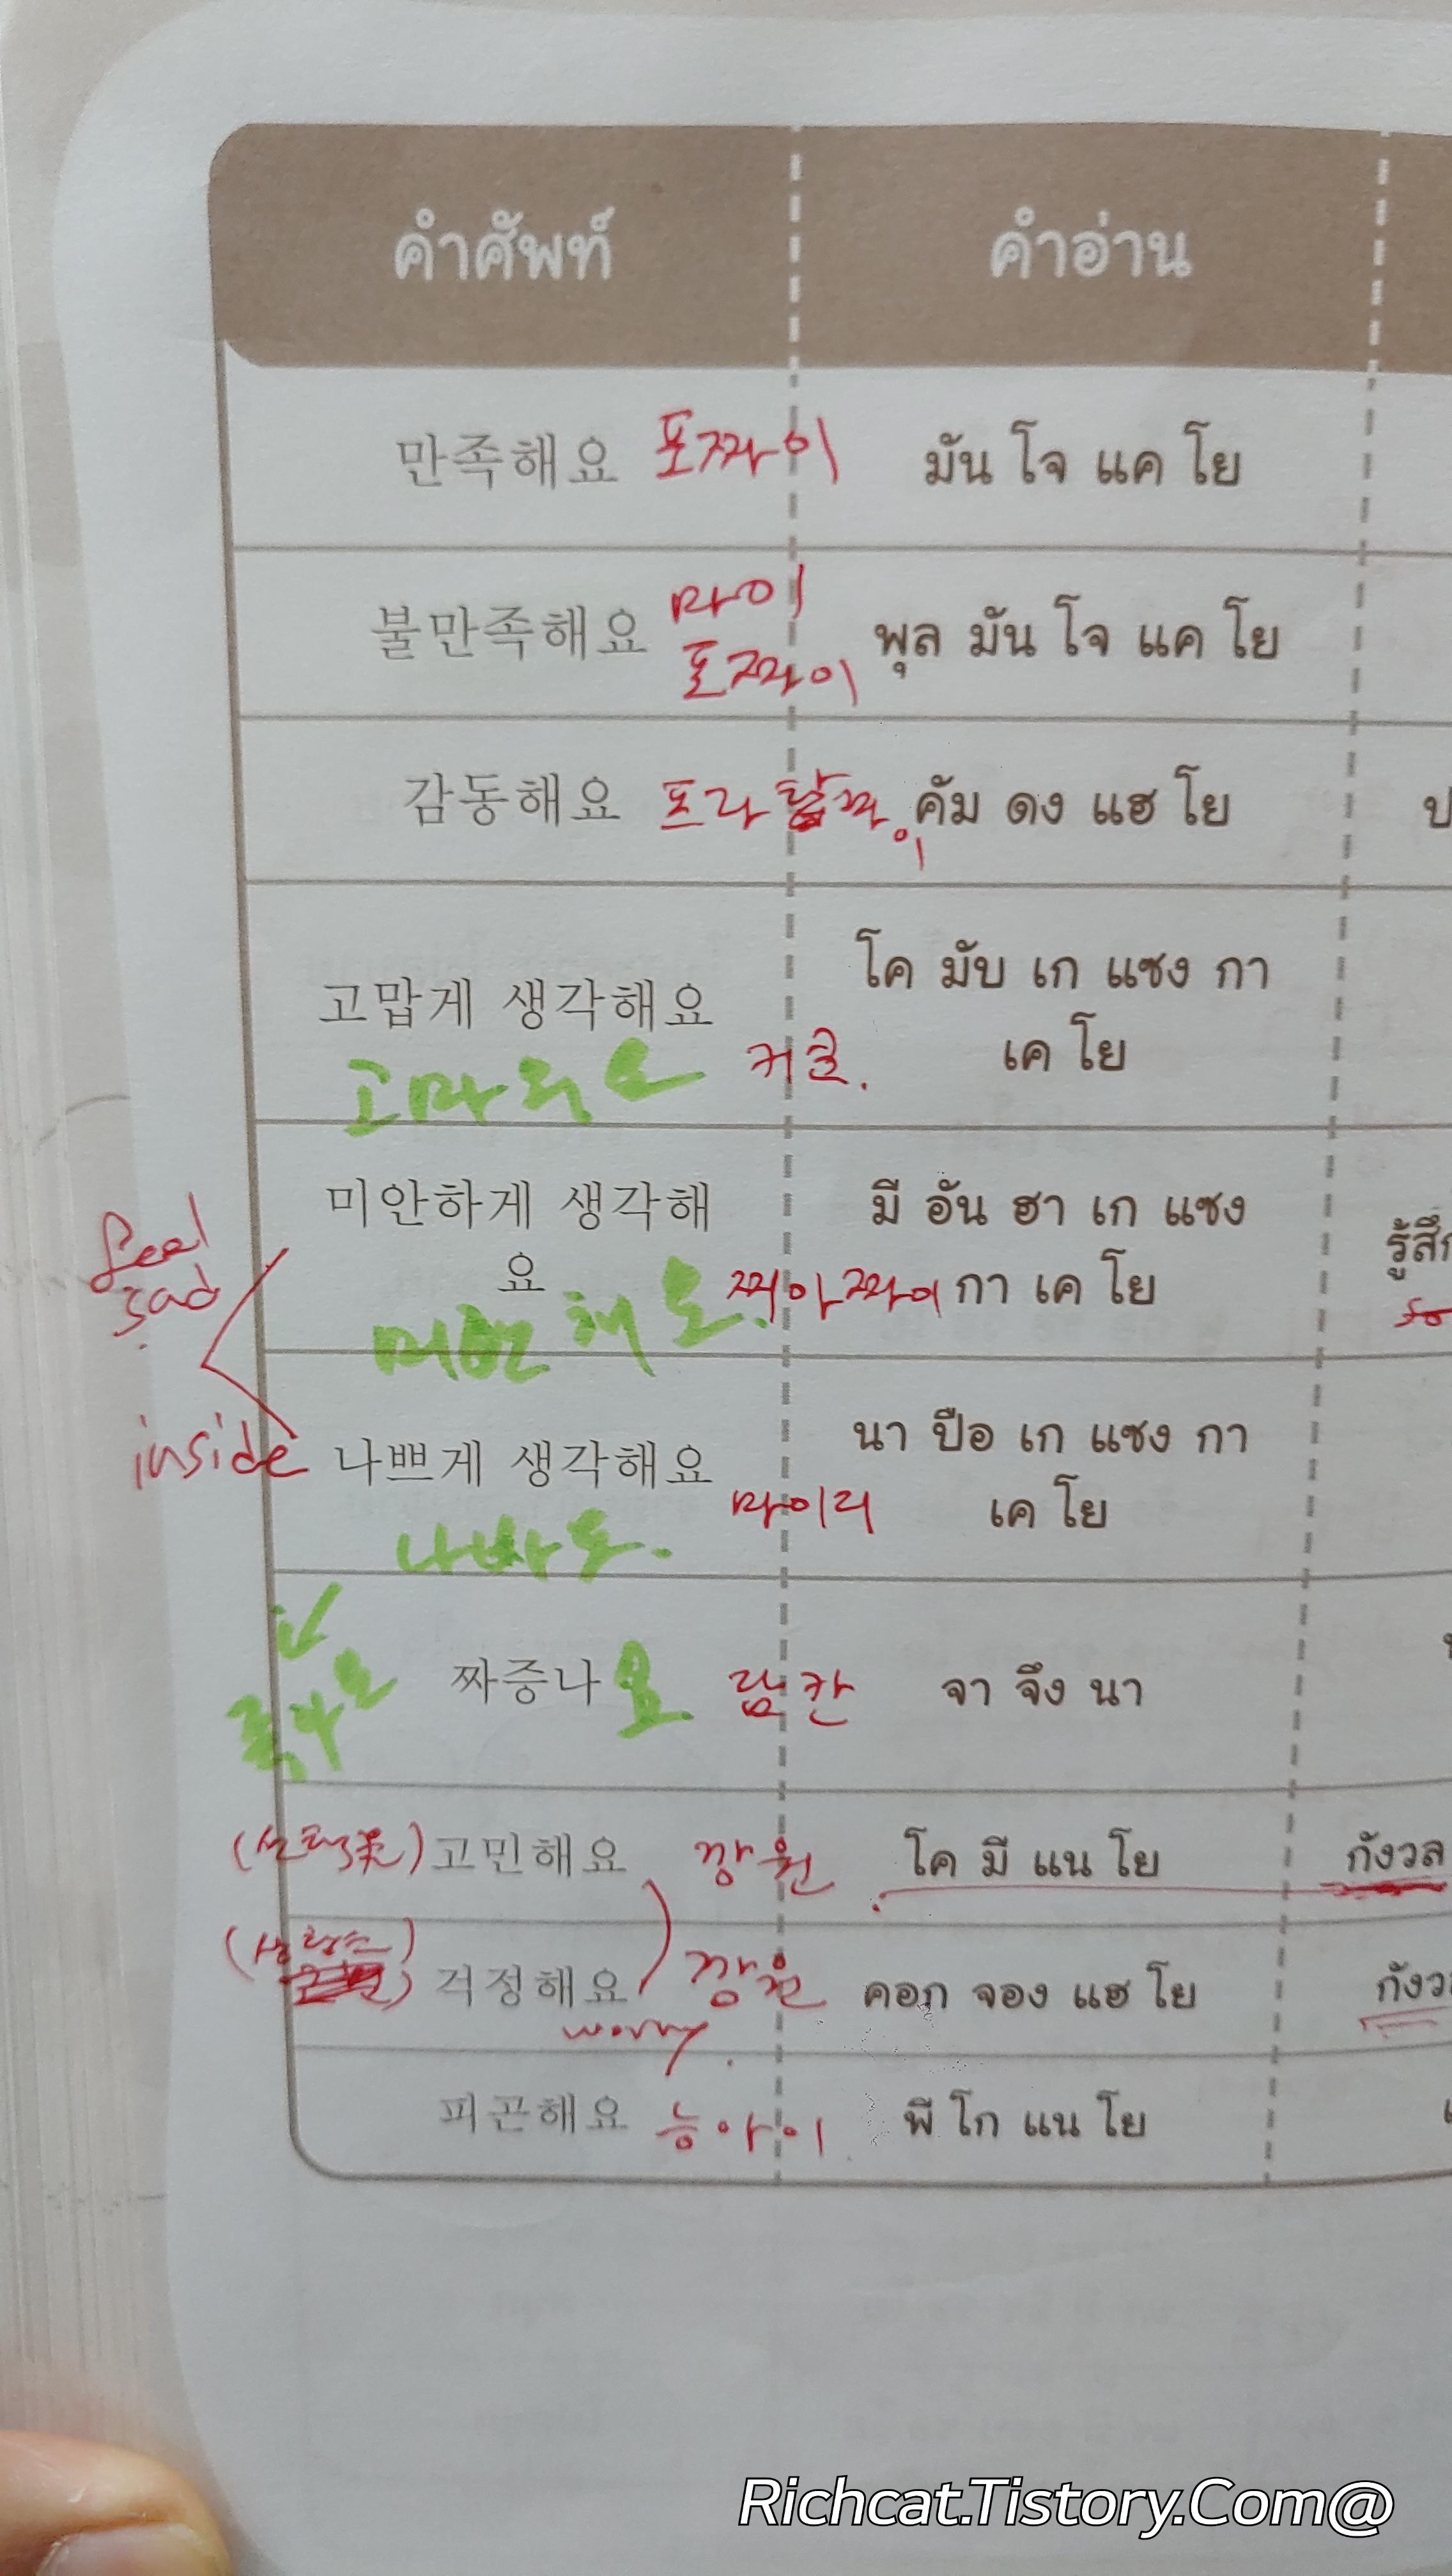 คำศัพท์ คำอ่าน
만족해요 포짜이 มัน โจ แค โย
불만족해요 마이 포짜이 พุล มัน โจ แค โย
감동해요 프라 คัม ดง แฮ โย
고맙게 생각해요 โค มับ เก แซง กา
고마워요 เค โย
미안하게 생각해 มี อัน ฮา เก แซง
요 찌아 짜이 กา เค โย
feel
sad
미안해요.
inside 나쁘게 생각해요 นา ปือ เก แซง กา
마이 เค โย
나빠요.
짜증나요 จา จึง นา
고민해요 깡원 โค มี แน โย กังวล
걱정해요 깡원 คอก จอง แฮ โย
worry.
피곤해요 พี โก แน โย
Richcat.Tistory.Com@